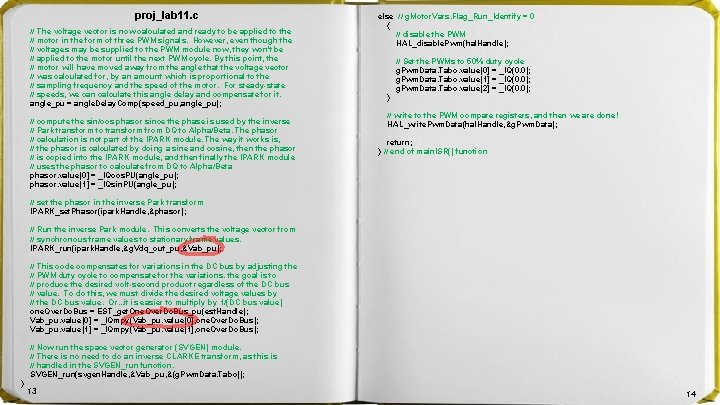 proj_lab11.c
// The voltage vector is now calculated and ready to be applied to the
// motor in the form of three PWM signals. However, even though the
// voltages may be supplied to the PWM module now, they won't be
// applied to the motor until the next PWM cycle. By this point, the
// motor will have moved away from the angle that the voltage vector
// was calculated for, by an amount which is proportional to the
// sampling frequency and the speed of the motor. For steady-state
// speeds, we can calculate this angle delay and compensate for it.
angle_pu = angleDelayComp(speed_pu,angle_pu);
// compute the sin/cos phasor since the phase is used by the inverse
// Park transform to transform from DQ to Alpha/Beta. The phasor
// calculation is not part of the IPARK module. The way it works is,
// the phasor is calculated by doing a sine and cosine, then the phasor
// is copied into the IPARK module, and then finally the IPARK module
// uses the phasor to calculate from DQ to Alpha/Beta
phasor.value[0] = _IQcosPU(angle_pu);
phasor.value[1] = _IQsinPU(angle_pu);
// set the phasor in the inverse Park transform
IPARK_setPhasor(iparkHandle,&phasor);
// Run the inverse Park module. This converts the voltage vector from
// synchronous frame values to stationary frame values.
IPARK_run(iparkHandle,&gVdq_out_pu,&Vab_pu);
// This code compensates for variations in the DC bus by adjusting the
// PWM duty cycle to compensate for the variations. the goal is to
// produce the desired volt-second product regardless of the DC bus
// value. To do this, we must divide the desired voltage values by
// the DC bus value. Or...it is easier to multiply by 1/(DC bus value)
oneOverDcBus = EST_getOneOverDcBus_pu(estHandle);
Vab_pu.value[0] = _IQmpy(Vab_pu.value[0],oneOverDcBus);
Vab_pu.value[1] = _IQmpy(Vab_pu.value[1],oneOverDcBus);
// Now run the space vector generator (SVGEN) module.
// There is no need to do an inverse CLARKE transform, as this is
// handled in the SVGEN_run function.
SVGEN_run(svgenHandle,&Vab_pu,&(gPwmData.Tabc));
}
13
else // gMotorVars.Flag_Run_Identify = 0
{
// disable the PWM
HAL_disablePwm(halHandle);
// Set the PWMs to 50% duty cycle
gPwmData.Tabc.value[0] = _IQ(0.0);
gPwmData.Tabc.value[1] = _IQ(0.0);
gPwmData.Tabc.value[2] = _IQ(0.0);
}
// write to the PWM compare registers, and then we are done!
HAL_writePwmData(halHandle,&gPwmData);
return;
} // end of mainISR() function
14